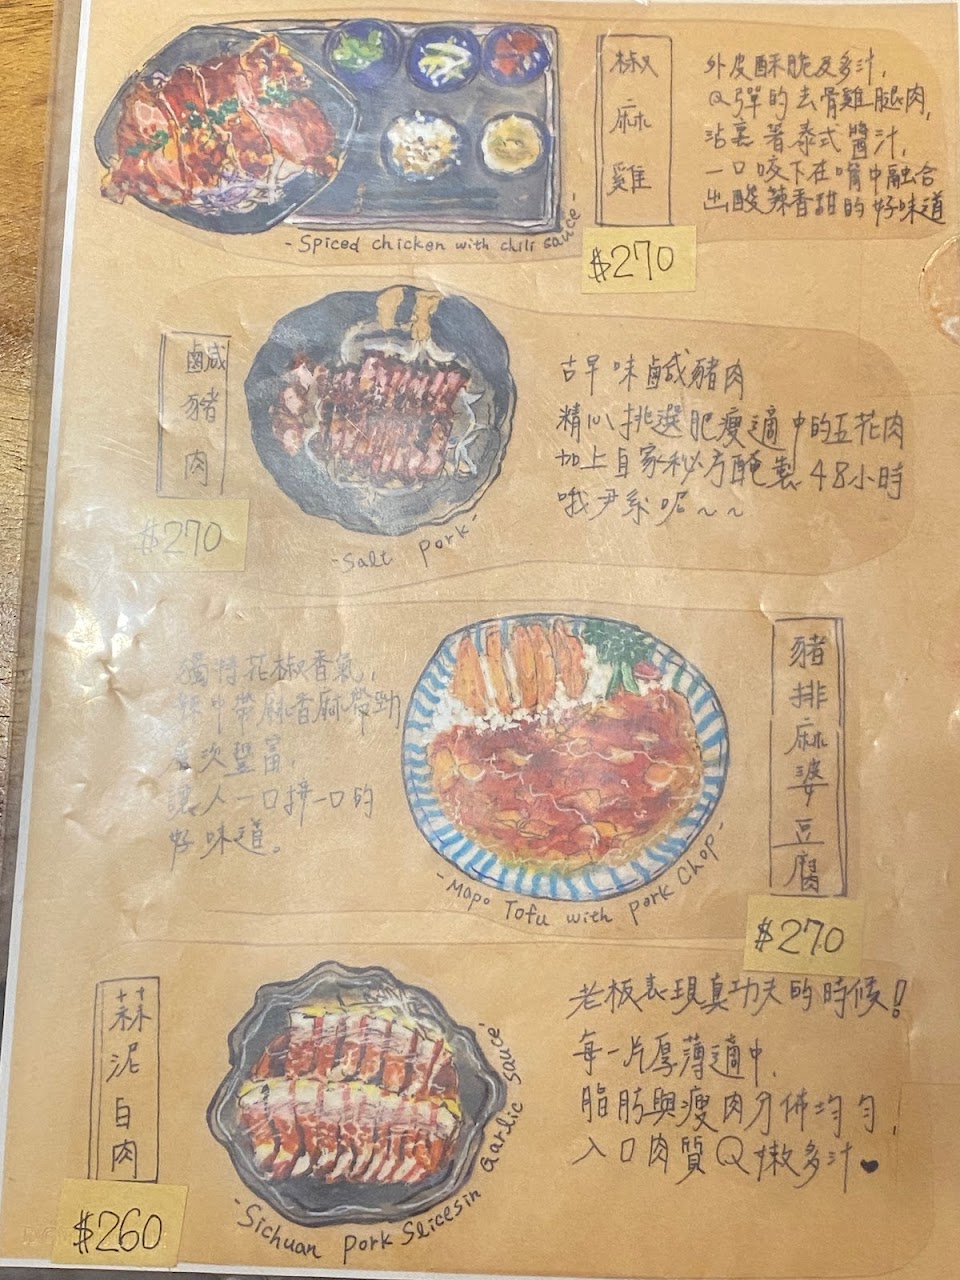 椒麻雞
外皮酥脆及多汁,
Q彈的去骨雞腿肉,
沾裹著泰式醬汁,
一口咬下在嘴中融合
出酸辣香甜的好味道
- Spiced chicken with chili sauce -
$270
鹹豬肉
古早味鹹豬肉
精心挑選肥瘦適中的五花肉
加上自家秘方醃製48小時
哦尹系呢~~
$270
-Salt pork-
豬排麻婆豆腐
獨特花椒香氣,
辣中帶麻香麻帶勁
層次豐富,
讓人一口接一口的
好味道。
-Mapo Tofu with pork chop-
$270
蒜泥白肉
老板表現真功夫的時候!
每一片厚薄適中,
脂肪與瘦肉分佈均勻,
入口肉質Q嫩多汁♥
-Sichuan pork Slicesin Garlic sauce-
$260